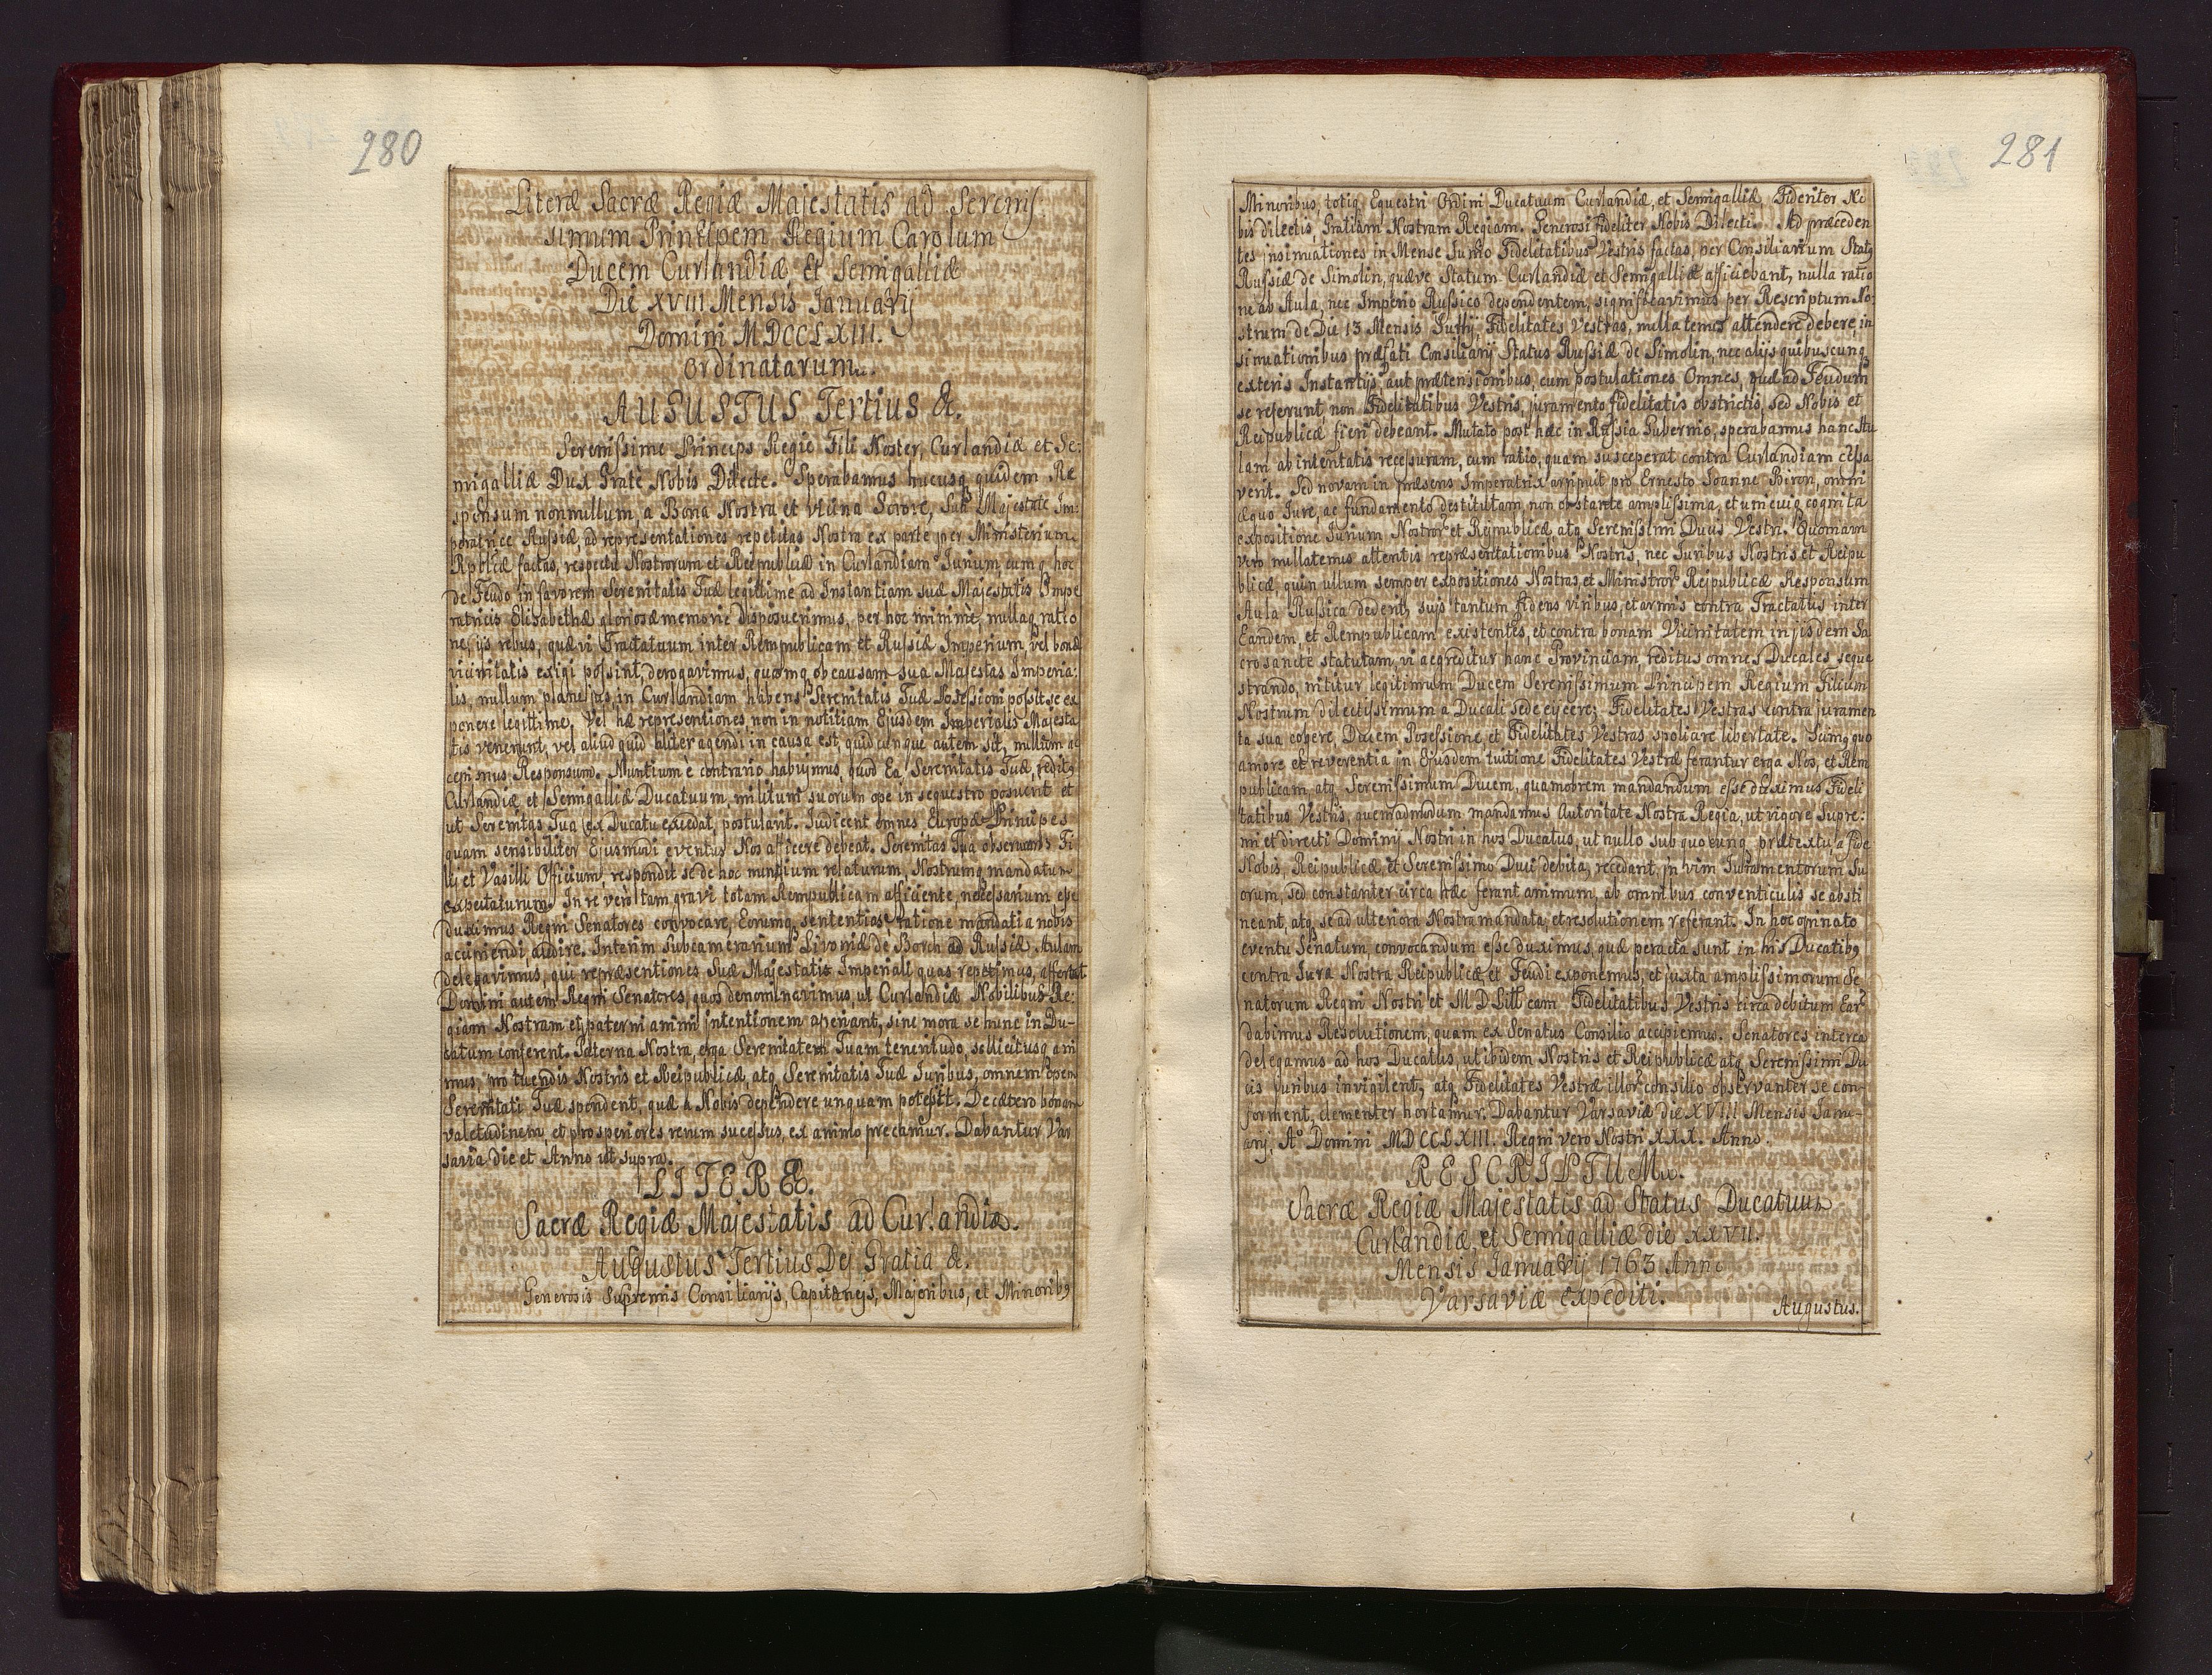 280
Literæ Sacræ Regiæ Majestatis ad Serenis-
simum Principem Regium Carolum
Ducem Curlandiæ et Semigalliæ
Die XVIII Mensis Januarij
Domini MDCCLXIII.
Ordinatarum.
AUGUSTUS Tertius &.
Serenissime Princeps Regie Fili Noster, Curlandiæ et Se:
migalliæ Dux Grate Nobis Dilecte. Sperabamus hucusq quidem Re
sponsum nonnullum, a Bona Nostra et vicina Sorore, Sua Majestate Im:
peratrice Russiæ, ad representationes repetitas Nostra ex parte per Ministerium
Rpblicæ factas, respectu Nostrorum et Reipublicæ in Curlandiam Jurium, cumq hoc
de Feudo in favorem Serenitatis Tuæ legittime ad Instantiam suæ Majestatis Impe
ratricis Elisabethæ gloriosæ memoriæ disposuerimus, per hoc minimè, nullaq ratio
ne, ijs rebus, quæ vi Tractatuum inter Rempublicam et Russiæ Imperium, vel bonæ
vicinitatis exigi possint, derogavimus, quamq ob causam sua Majestas Imperia:
lis, nullum plane jus in Curlandiam habens Serenitatis Tuæ Possessioni possit se ex
ponere legittime. Vel hæ representiones non in notitiam Ejusdem Imperialis Majesta
tis venerunt, vel aliud quid aliter agendi in causa est, quidcunque autem sit, nullum ac
cepimus Responsum. Nuntium è contrario habuimus, quod Ea Serenitatis Tuæ, redit9
Curlandiæ et Semigalliæ Ducatuum, militum suorum ope in sequestro posuerit et
ut Serenitas Tua ex Ducatu excedat, postularit. Judicent omnes Europæ Principes
quam sensibiliter Ejusmodi eventus Nos afficere debeat. Serenitas Tua observans Fi
lij et Vasilli Officium, respondit se de hoc nuntium relaturum, Nostrumq mandatum
expectaturum. In re verò tam gravi totam Rempublicam afficiente, necessarium esse
duximus Regni Senatores convocare, Eorumq sententias, ratione mandati a nobis
accipiendi, audire. Interim Subcamerarium Livoniæ de Borch ad Russiæ Aulam
delegavimus, qui repræsentiones Suæ Majestatis Imperiali quas repetimus, afferat.
Domini autem Regni Senatores, quos denominavimus, ut Curlandiæ Nobilibus Re:
giam Nostram et paterni animi intentionem aperiant, sine mora se hunc in Du-
catum conferent. Paterna Nostra, erga Serenitatem Tuam teneritudo, sollicitusq ani
mus, pro tuendis Nostris et Reipublicæ, atq Serenitatis Tuæ Juribus, omnem opem
Serenitati Tuæ spondent, quæ à Nobis dependere unquam potestt. De cætero bonam
valetudinem, et prosperiores rerum sucessus, ex animo precamur. Dabantur Var
saviæ die et Anno ut supra.
LITERÆ.
Sacræ Regiæ Majestatis ad Curlandiæ.
Augustus Tertius Dej Gratia &.
Generosis Supremis Consiliarijs, Capitaneis, Majoribus, et Minorib9
281
Minoribus, totiq Equestri Ordini Ducatuum Curlandiæ, et Semigalliæ, Fideliter No
bis dilectis, Gratiam Nostram Regiam. Generosi Fideliter Nobis Dilecti. Ad præceden
tes insinuationes in Mense Junio Fidelitatibus Vestris factas, per Consiliarium Stat9
Russiæ de Simolin, quæve Statum Curlandiæ et Semigalliæ afficiebant, nulla ratio
ne ab Aula, nec Imperio Russico dependentem, significavimus per Rescriptum No:
strum de Die 13 Mensis Julij, Fidelitates Vestras, nullatenus attendere debere, in
sinuationibus præfati Consiliarij Status Russiæ de Simolin, nec alijs quibuscunq
exteris Instantijs, aut prætensionibus, cum postulationes Omnes, quæ ad Feudum
se referunt non Fidelitatibus Vestris, juramento fidelitatis obstrictis, sed Nobis et
Reipublicæ fieri debeant. Mutato post hæc in Russia Gubernio, sperabamus hanc Au
lam ab intentatis recessuram, cum ratio, quam susceperat contra Curlandiam cessa
verit. Sed novam in præsens Imperatrix arripuit pro Ernesto Joanne Biron, omni
æquo Jure, ac fundamento destitutam, non obstante amplissima, et unicuiq cognita
expositione Jurium Nostror et Reipublicæ atq Serenissimi Ducis Vestri. Quoniam
vero nullatenus attentis repræsentationibus Nostris, nec Juribus Nostris et Reipu
blicæ, quin ullum semper expositiones Nostras, et Ministror Reipublicæ Responsum
Aula Russica dederit, sujs tantum fidens viribus, et armis contra Tractatus inter
Eandem, et Rempublicam existentes, et contra bonam Vicinitatem in ijsdem Sa
crosancte statutam, vi aegreditur hanc Provinciam, reditus omnes Ducales seque
strando, nititur legitimum Ducem Serenissimum Principem Regium Filium
Nostrum dilectissimum a Ducali sede ejicere, Fidelitates Vestras contra juramen
ta sua cogere, Ducem Possessione, et Fidelitates Vestras spoliare libertate. Cumq quo
amore et reverentia in Ejusdem tuitione Fidelitates Vestræ ferantur erga Nos, et Rem
publicam, atq Serenissimum Ducem, quamobrem mandandum esse duximus Fideli
tatibus Vestris, quemadmodum mandamus Autoritate Nostra Regia, ut vigore Supre:
mi et directi Dominij Nostri in hos Ducatus, ut nullo sub quocunq prætextu, a fide
Nobis, Reipublicæ, et Serenissimo Duci debita, recedant, in vim Juramentorum Su
orum, sed constanter circa hæc ferant animum, ab omnibus conventiculis se absti
neant, atq se ad ulteriora Nostra mandata, et resolutionem referant. In hoc opinato
eventu Senatum, convocandum esse duximus, quæ peracta sunt in his Ducatib9
contra Jura Nostra Reipublicæ, et Feudi exponemus, et juxta amplissimorum Se
natorum Regni Nostri et M D Litt eam Fidelitatibus Vestris circa debitum Ear
dabimus Resolutionem, quam ex Senatus Consilio accipiemus. Senatores interea
delegamus ad hos Ducatus, ut ibidem Nostris et Reipublicæ atq Serenissimi Du
cis Juribus invigilent, atq Fidelitates Vestræ illor consilio observanter se con-
forment, clementer hortamur. Dabantur Varsaviæ die XVIII Mensis Janu-
arij, Ao Domini MDCCLXIII. Regni vero Nostri XXX. Anno.
RESCRIPTUM.
Sacræ Regiæ Majestatis ad Status Ducatuum
Curlandiæ, et Semigalliæ die XXVII.
Mensis Januarij 1763 Anno
Varsaviæ expediti.
Augustus.